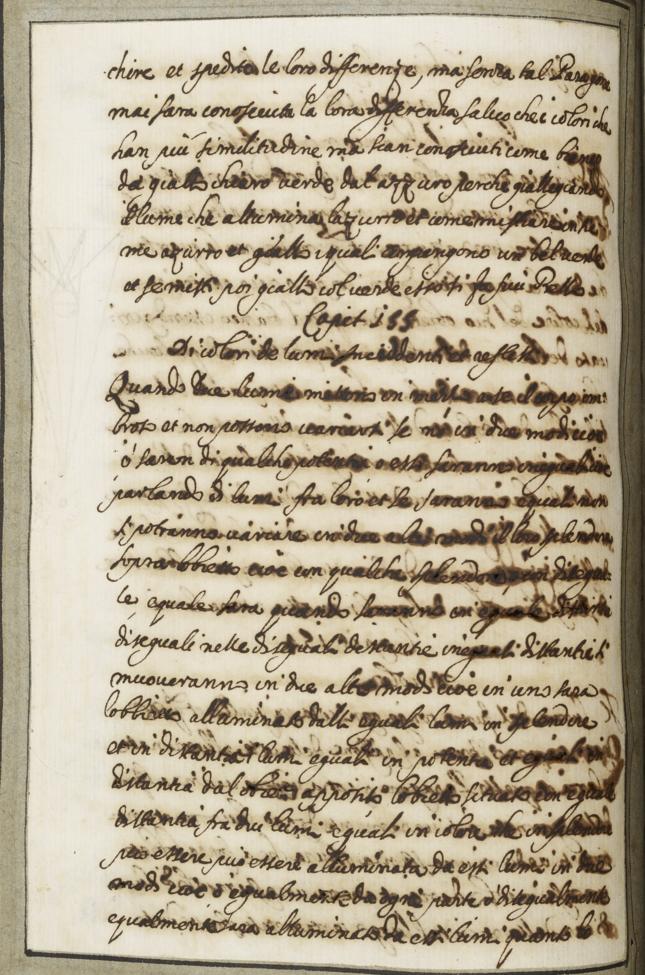 chire et spedite le loro differenze, ma senza tal Paragone
mai sara conosciuta la loro differentia salvo che i colori che
han più similitudine ma sian conosciuti come bianco
da giallo chiaro verde dal azzuro perche giallegiando
il lume che allumina lazzurro et come mistiare insie
me azurro et giallo i quali compongono un bel verde
et se misti poi giallo col verde
Capit 155
Di colori de lumi Incidenti et reflessi
Quando due lumi mettono in mezzo a se il corpo om:
broso et non possono variarsi se no in due modi cioe
o saran di qualche potentia o essi saranno inequali cioe
parlando di lumi fra loro et se saranno equali non
si potranno variare in due altri modi il loro splendore
sopra lobbietto cioe con qualche splendore o con disegua:
le equale sara quando saranno in equale distantia
diseguali nelle diseguali distantie inequali distanti si
muoveranno in due altri modi cioe in uno sara
lobbietto alluminato dalli equali lumi in splendore
et in distantia i lumi equali in potentia et equali in
distantia dal obietto apposito lobietto situato con equal
distantia fra dui lumi equali in colore et in splendore
puo essere puo essere alluminato da essi lumi in due
modi cioe o equalmente da ogni parte o disegualmente
equalmente sara alluminato da essi lumi quanto lo